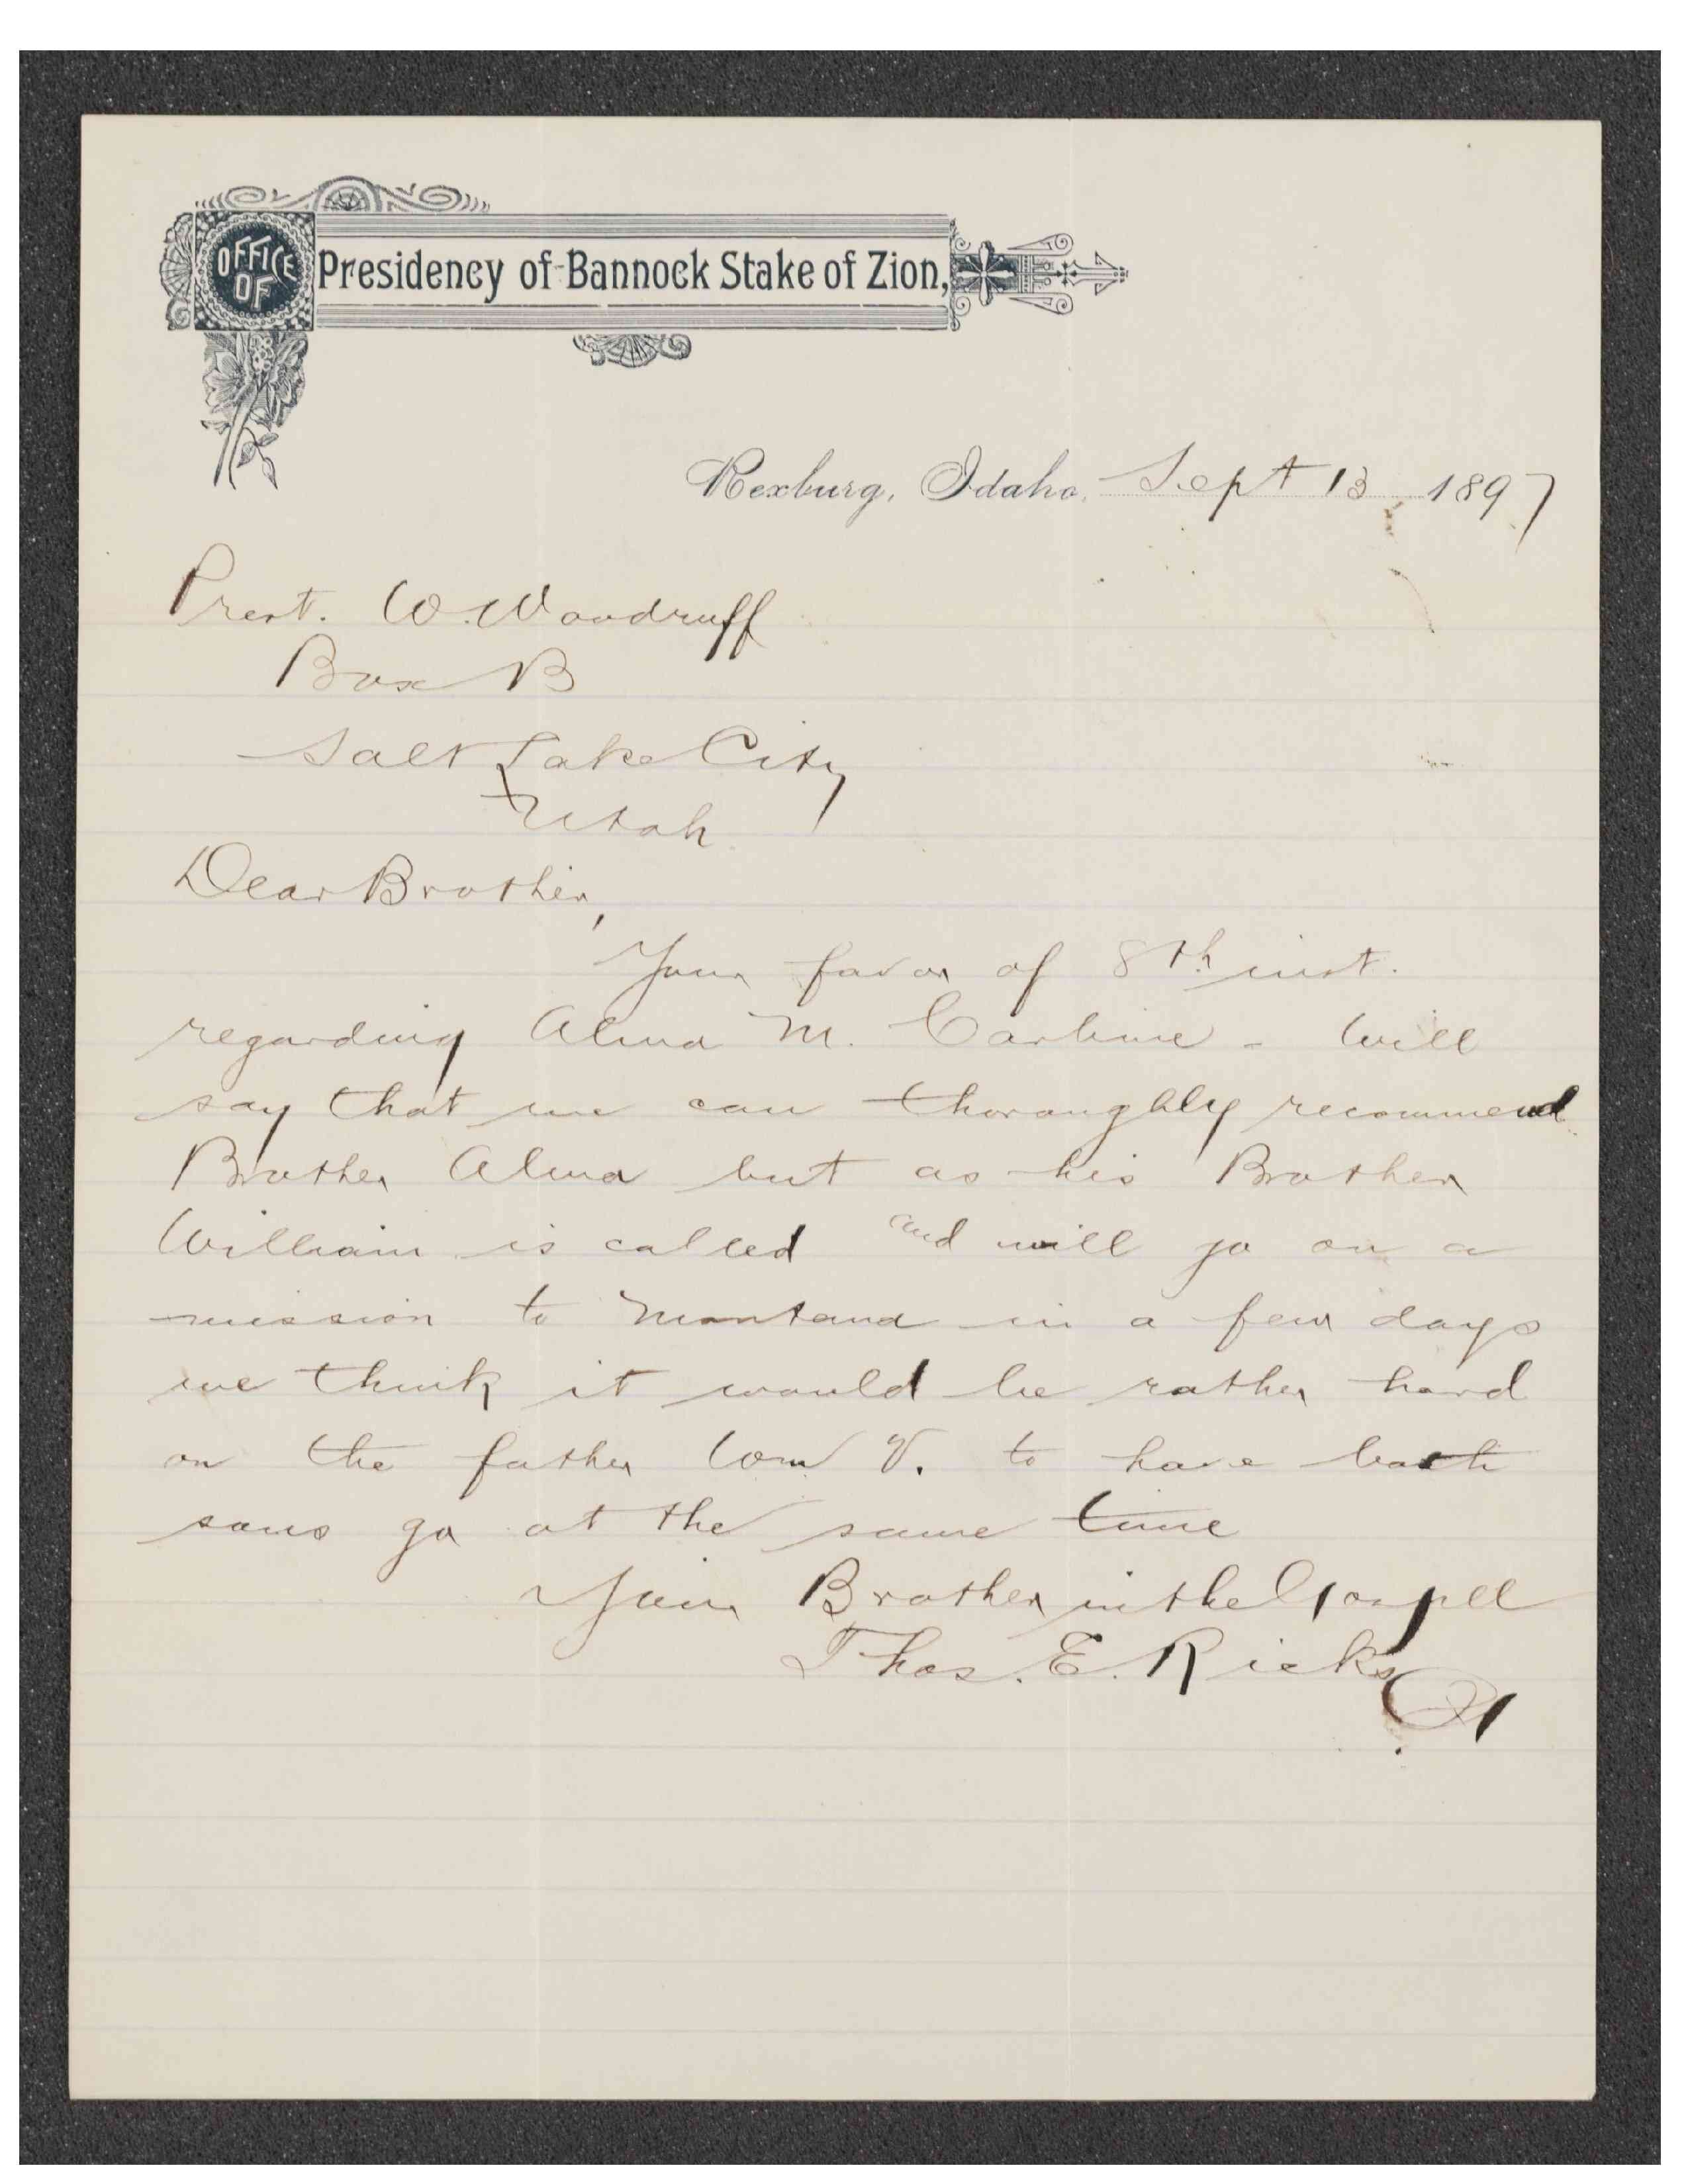 OFFICE OF Presidency of Bannock Stake of Zion,
Rexburg, Idaho, Sept 13, 1897
Prest. W. Woodruff
Box B
Salt Lake City
Utah
Dear Brother,
Your favor of 8th inst.
regarding Alma M. Carbine - will
say that we can thoroughly recommend
Brother Alma but as his Brother
William is called and will go on a
mission to Montana in a few days
we think it would be rather hard
on the father Wm V. to have both
sons go at the same time
Your Brother in the Gospell
Thos. E. Ricks